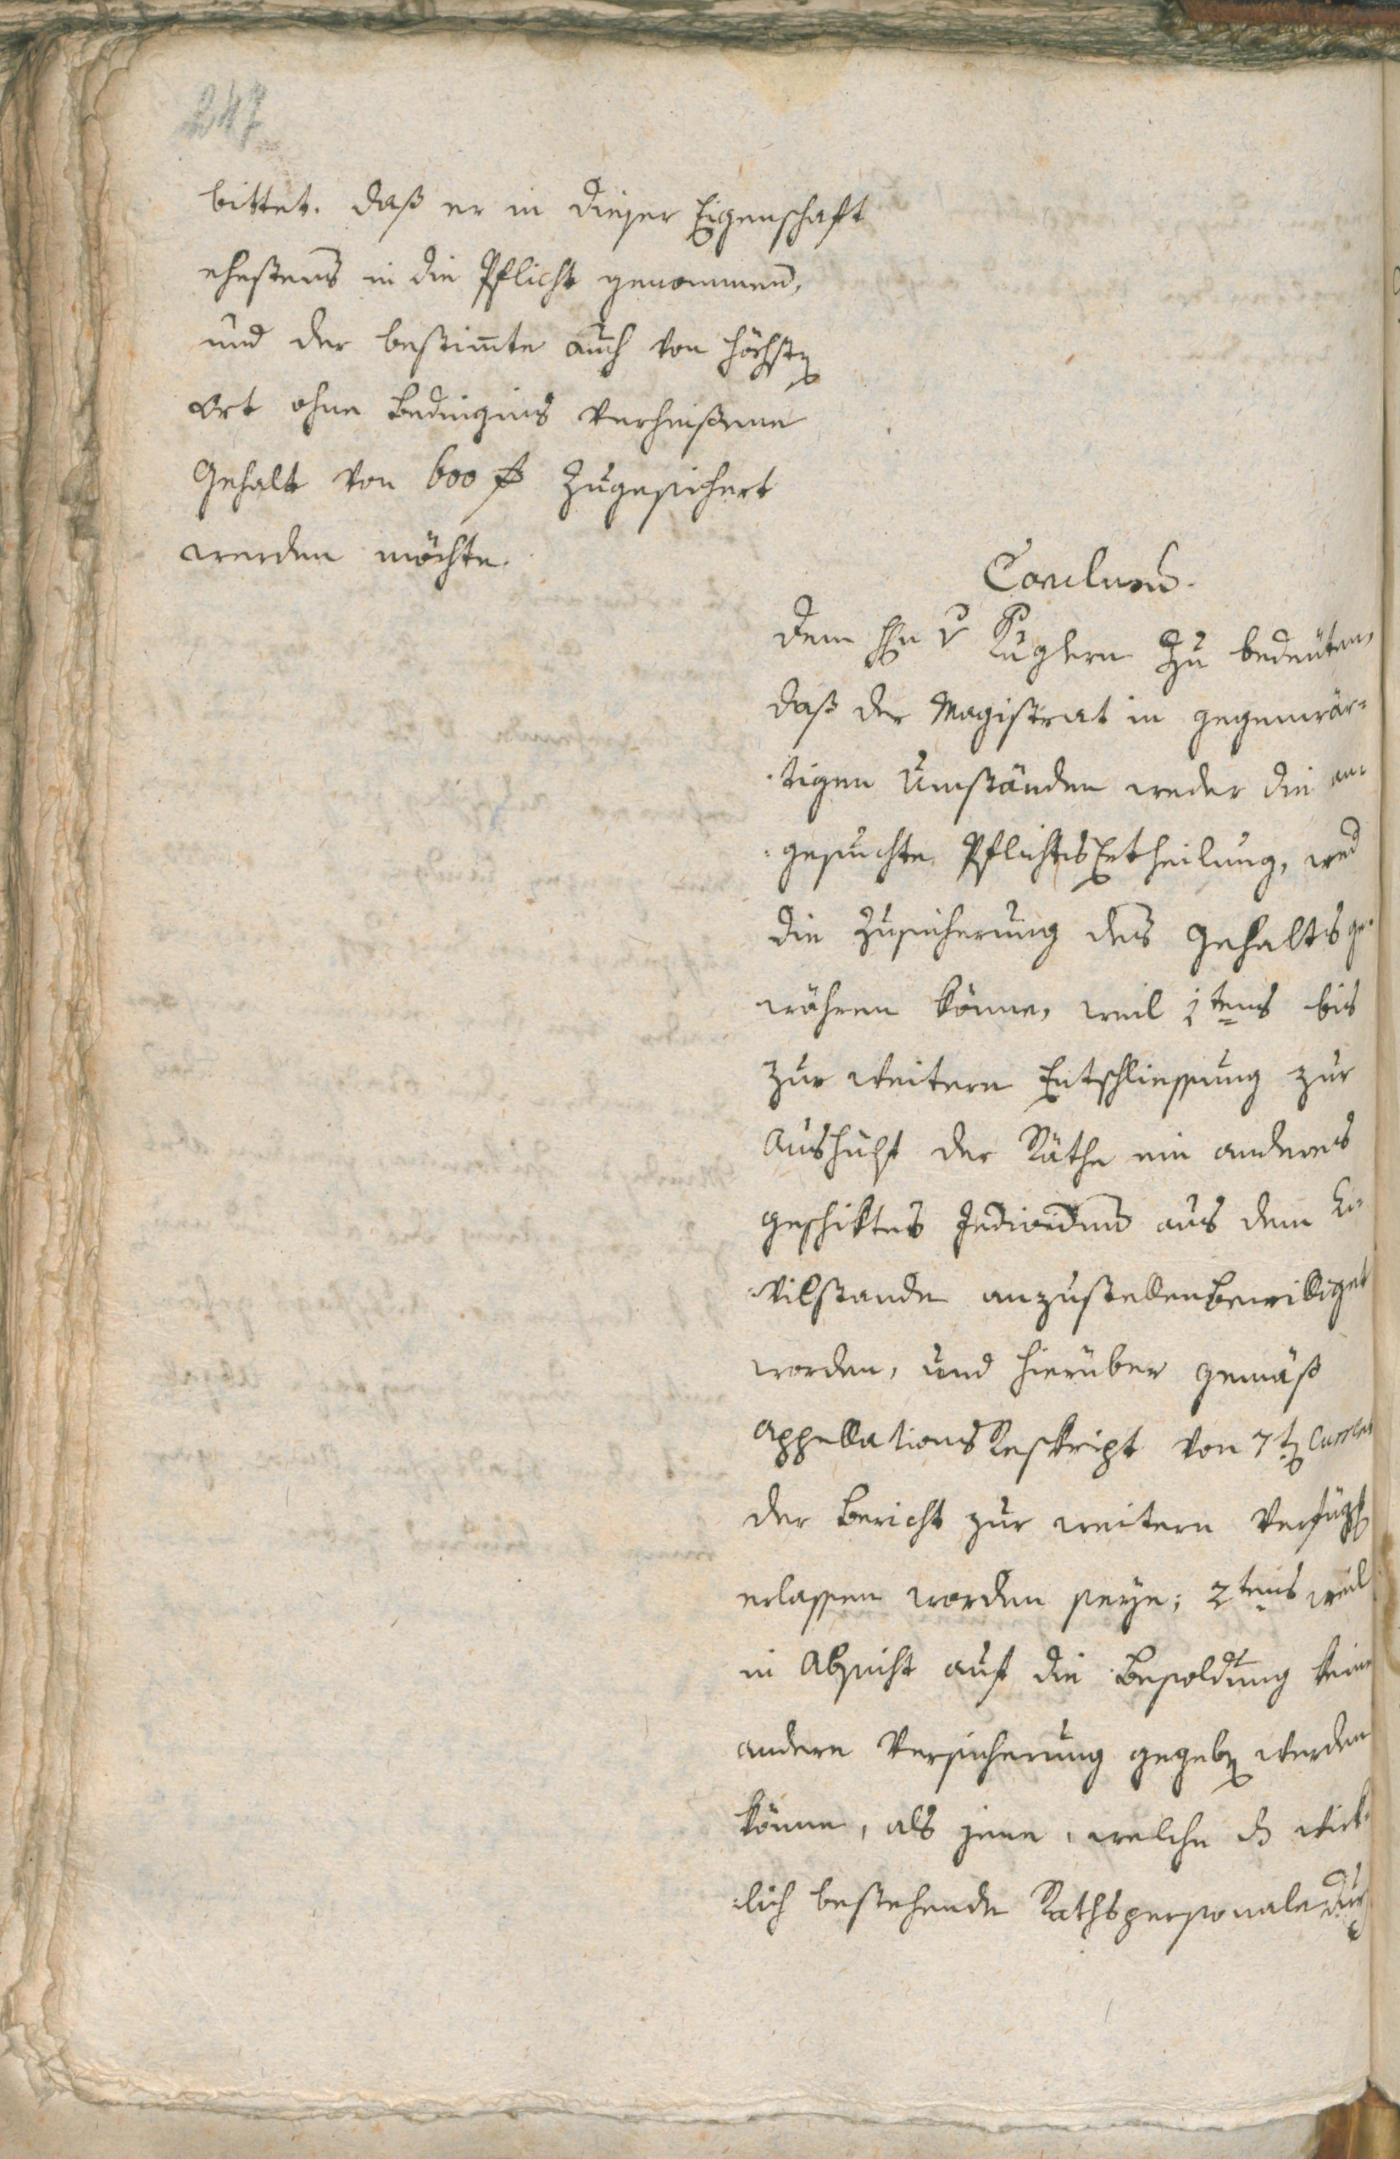 247
bittet. daß er in dieser Eigenschaft
ehestens in die Pflicht genommen,
und der bestimte auch von höchsten
Ort ohne Bedingnis verheißene
Gehalt von 600 f zugesichert
werden möchte.
Conclusum.
dem Hn v Kuglern zu bedeuten,
daß der Magistrat in gegenwär=
tigen Umständen weder die an=
gesuchte Pflichts Ertheilung, wed
die Zusicherung des Gehalts ge=
währen könne, weil 1tens bis
zur weitern Entschliessung zur
Aushülf der Räthe ein anderes
geschiktes Individuum aus dem Ci=
vilstande anzustellen bewilliget
worden, und hierüber gemäß
Appellations Reskript von 7ten Currentis
der Bericht zur weitern Verfügung
erlassen worden seye; 2tens weil
in Absicht auf die Besoldung keine
andere Versicherung gegeben werden
könne, als jene, welche das wirk=
lich bestehende Rathspersonale